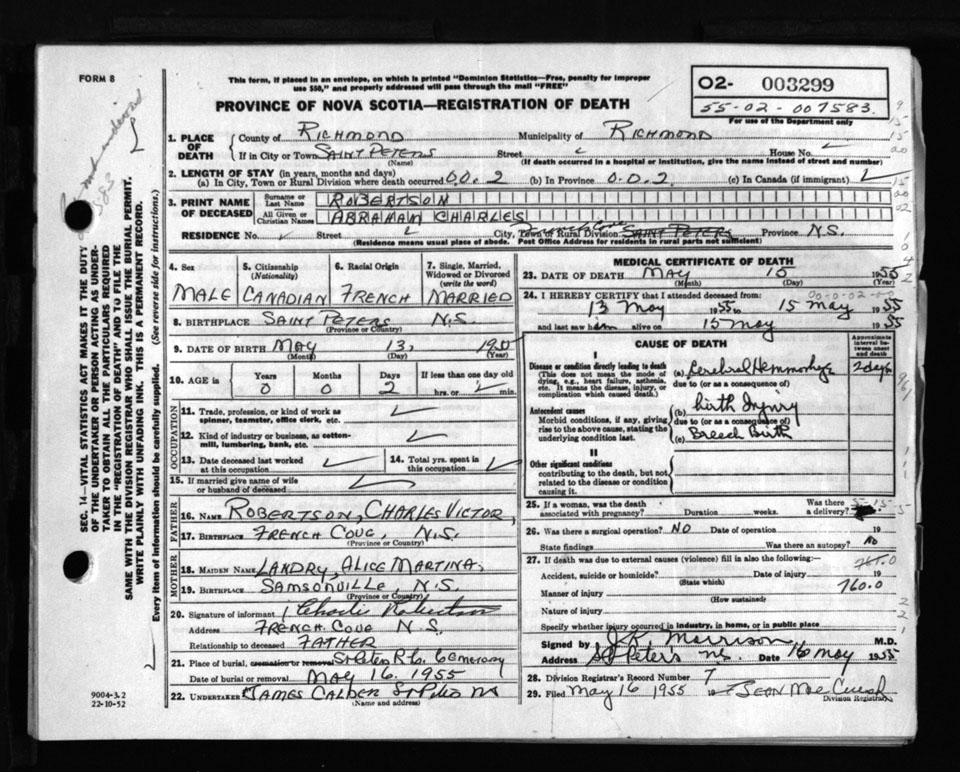 FORM 8
This form, if placed in an envelope, on which is printed "Dominion Statistics—Free, penalty for improper
use $50," and properly addressed will pass through the mail "FREE"
PROVINCE OF NOVA SCOTIA—REGISTRATION OF DEATH
02- 003299
55-02-007583
For use of the Department only
1. PLACE OF DEATH
County of RICHMOND Municipality of RICHMOND
If in City or Town SAINT PETERS Street House No.
(Name) (If death occurred in a hospital or institution, give the name instead of street and number)
2. LENGTH OF STAY (in years, months and days)
(a) In City, Town or Rural Division where death occurred 0.0.2 (b) In Province 0.0.2 (c) In Canada (if immigrant)
3. PRINT NAME OF DECEASED
Surname or Last Name ROBERTSON
All Given or Christian Names ABRAHAM CHARLES
RESIDENCE No. Street City, Town or Rural Division SAINT PETERS Province N.S.
(Residence means usual place of abode. Post Office Address for residents in rural parts not sufficient)
4. Sex 5. Citizenship (Nationality) 6. Racial Origin 7. Single, Married, Widowed or Divorced (write the word)
MALE CANADIAN FRENCH MARRIED
8. BIRTHPLACE SAINT PETERS N.S.
(Province or Country)
9. DATE OF BIRTH MAY 13,
(Month) (Day) (Year)
10. AGE in Years Months Days If less than one day old
0 0 2 hrs. or min.
OCCUPATION
11. Trade, profession, or kind of work as spinner, teamster, office clerk, etc.
12. Kind of industry or business, as cotton-mill, lumbering, bank, etc.
13. Date deceased last worked at this occupation
14. Total yrs. spent in this occupation
15. If married give name of wife or husband of deceased
FATHER
16. NAME ROBERTSON, CHARLES VICTOR,
17. BIRTHPLACE FRENCH COVE, N.S.
(Province or Country)
MOTHER
18. MAIDEN NAME LANDRY, ALICE MARTINA,
19. BIRTHPLACE SAMSONVILLE N.S.
(Province or Country)
20. Signature of informant Charlie Robertson
Address FRENCH COVE N S
Relationship to deceased FATHER
21. Place of burial, cremation or removal St Peters R.C. Cemetary
Date of burial or removal MAY 16. 1955
22. UNDERTAKER JAMES CALDER St Peters NS
(Name and address)
MEDICAL CERTIFICATE OF DEATH
23. DATE OF DEATH MAY 15 1955
(Month) (Day)
24. I HEREBY CERTIFY that I attended deceased from:
13 May 1955 to 15 May 1955
and last saw him alive on 15 May 1955
CAUSE OF DEATH
Approximate interval between onset and death
I
Disease or condition directly leading to death
(This does not mean the mode of dying, e.g., heart failure, asthenia, etc. It means the disease, injury, or complication which caused death.)
(a) Cerebral Hemmorhage 2 days
due to (or as a consequence of)
Antecedent causes
Morbid conditions, if any, giving rise to the above cause, stating the underlying condition last.
(b) birth Injury
due to (or as a consequence of)
(c) Breech Birth
II
Other significant conditions
contributing to the death, but not related to the disease or condition causing it.
25. If a woman, was the death associated with pregnancy? Duration weeks. Was there a delivery?
26. Was there a surgical operation? NO Date of operation 19
State findings Was there an autopsy? No
27. If death was due to external causes (violence) fill in also the following:—
Accident, suicide or homicide? Date of injury 19
(State which)
Manner of injury 760.0
(How sustained)
Nature of injury
Specify whether injury occurred in industry, in home, or in public place
Signed by J.K. Morrison M.D.
Address St Peter's N.S. Date 16 May 1955
28. Division Registrar's Record Number 7
29. Filed May 16 1955 19
Division Registrar
SEC. 14—VITAL STATISTICS ACT MAKES IT THE DUTY
OF THE UNDERTAKER OR PERSON ACTING AS UNDERTAKER
TO OBTAIN ALL THE PARTICULARS REQUIRED
IN THE "REGISTRATION OF DEATH" AND TO FILE THE
SAME WITH THE DIVISION REGISTRAR WHO SHALL ISSUE THE BURIAL PERMIT.
WRITE PLAINLY WITH UNFADING INK. THIS IS A PERMANENT RECORD.
Every item of information should be carefully supplied. (See reverse side for instructions.)
9004-3.2
22-10-52